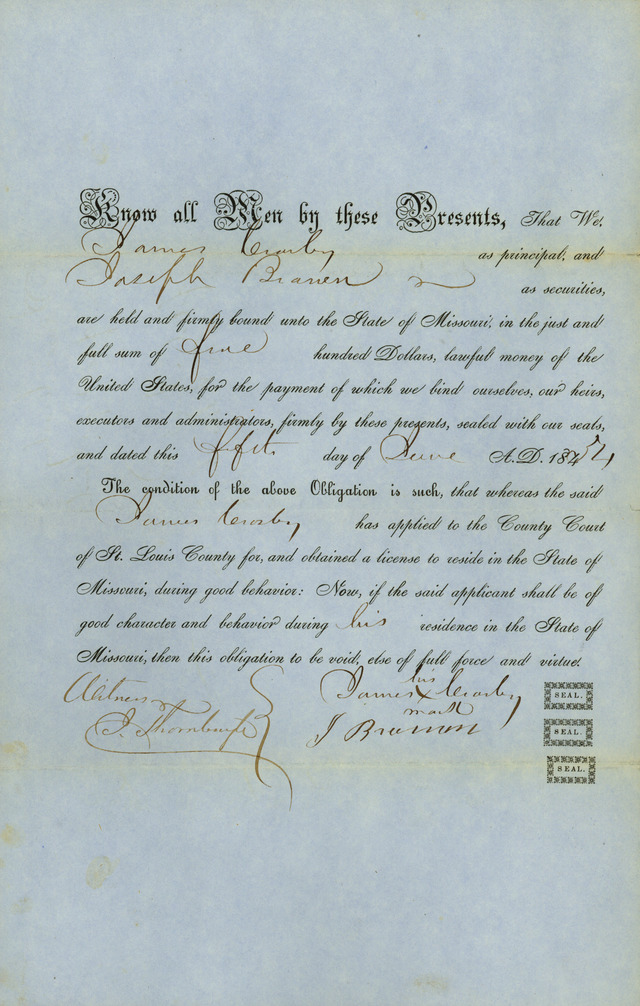 Know all Men by these Presents, That We,
James Crosby as principal, and
Joseph as securities,
are held and firmly bound unto the State of Missouri, in the just and
full sum of five hundred Dollars, lawful money of the
United States, for the payment of which we bind ourselves, our heirs,
executors and administrators, firmly by these presents, sealed with our seals,
and dated this day of June A. D. 184 54
The condition of the above Obligation is such, that whereas the said
James Crosby has applied to the County Court
of St. Louis County for, and obtained a license to reside in the State of
Missouri, during good behavior: Now, if the said applicant shall be of
good character and behavior during his residence in the State of
Missouri, then this obligation to be void, else of full force and virtue.
his
James x Crosby SEAL.
mark
Witness
J. Thornburgh
J SEAL.
SEAL.